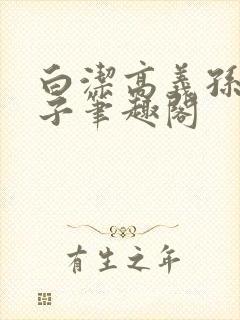 白潔高義孫
子筆趣閣
有生之年